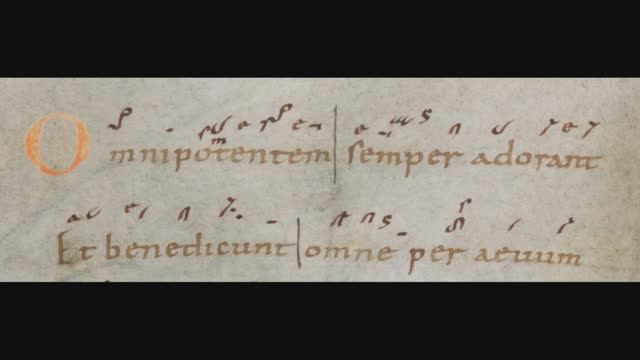 Omnipotentem semper adorant
Et benedicunt omne per aeuum